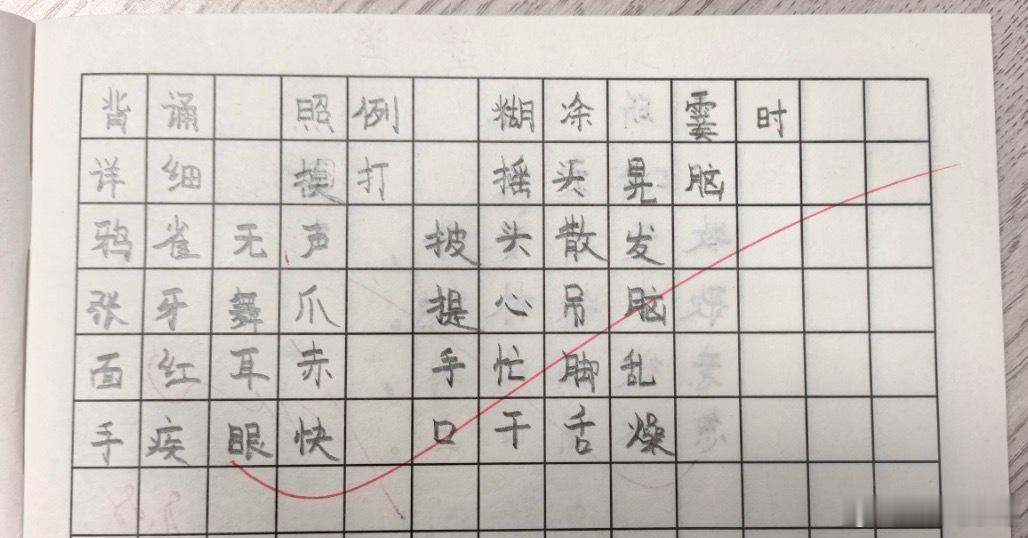 背诵 照例 糊涂 霎时
详细 摸打 摇头晃脑
鸦雀无声 披头散发
张牙舞爪 提心吊脑
面红耳赤 手忙脚乱
手疾眼快 口干舌燥